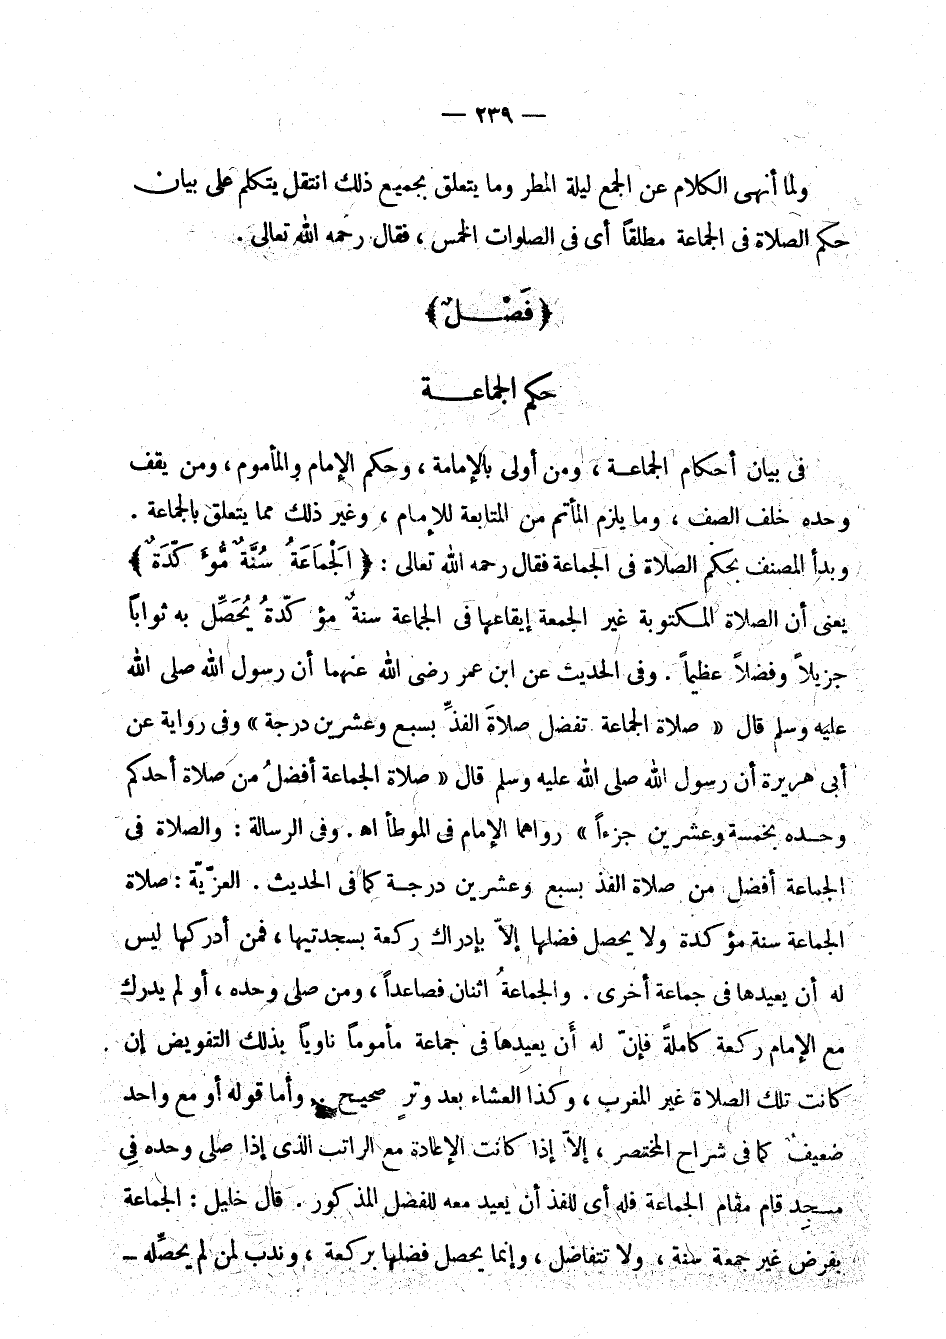 — ٢٣٩ —
ولما أنهى الكلام عن الجمع ليلة المطر وما يتعلق بجميع ذلك انتقل يتكلم على بيان
حكم الصلاة فى الجماعة مطلقاً أى فى الصلوات الخمس ، فقال رحمه الله تعالى .
﴿ فَصْــلٌ ﴾
حكم الجماعــة
فى بيان أحكام الجماعــة ، ومن أولى بالإمامة ، وحكم الإمام والمأموم ، ومن يقف
وحده خلف الصف ، وما يلزم المأتم من المتابعة للإمام ، وغير ذلك مما يتعلق بالجماعة .
وبدأ المصنف بحكم الصلاة فى الجماعة فقال رحمه الله تعالى : ﴿ اَلْجَمَاعَةُ سُنَّةٌ مُّؤَكَّدَةٌ ﴾
يعنى أن الصلاة المكتوبة غير الجمعة إيقاعها فى الجماعة سنةٌ مؤكّدةُ يُحَصِّل به ثواباً
جزيلاً وفضلاً عظيماً . وفى الحديث عن ابن عمر رضى الله عنهما أن رسول الله صلى الله
عليه وسلم قال « صلاة الجماعة تفضل صلاةَ الفذِّ بسبع وعشرين درجة » وفى رواية عن
أبى هريرة أن رسول الله صلى الله عليه وسلم قال « صلاة الجماعة أفضلُ من صلاة أحدكم
وحــده بخمسة وعشرين جزءاً » رواهما الإمام فى الموطأ اه . وفى الرسالة : والصلاة فى
الجماعة أفضل من صلاة الفذ بسبع وعشرين درجــة كما فى الحديث . العزّيّة : صلاة
الجماعة سنة مؤكدة ولا يحصل فضلها إلاّ بإدراك ركعة بسجدتيها ، فمن أدركها ليس
له أن يعيدها فى جماعة أخرى . والجماعةُ اثنان فصاعداً ، ومن صلى وحده ، أو لم يدرك
مع الإمام ركعة كاملةً فإنّ له أَن يعيدها فى جماعة مأموماً ناوياً بذلك التفويض إن
كانت تلك الصلاة غير المغرب ، وكذا العشاء بعد وترٍ صحيح . وأما قوله أو مع واحد
ضعيفٌ كما فى شراح المختصر ، إلاّ إذا كانت الإعادة مع الراتب الذى إذا صلى وحده فِي
مسجدٍ قام مقام الجماعة فله أى للفذ أن يعيد معه للفضل المذكور . قال خليل : الجماعة
بفرض غير جمعة سنة ، ولا تتفاضل ، وإنما يحصل فضلها بركعة ، وندب لمن لم يحصِّله ـ